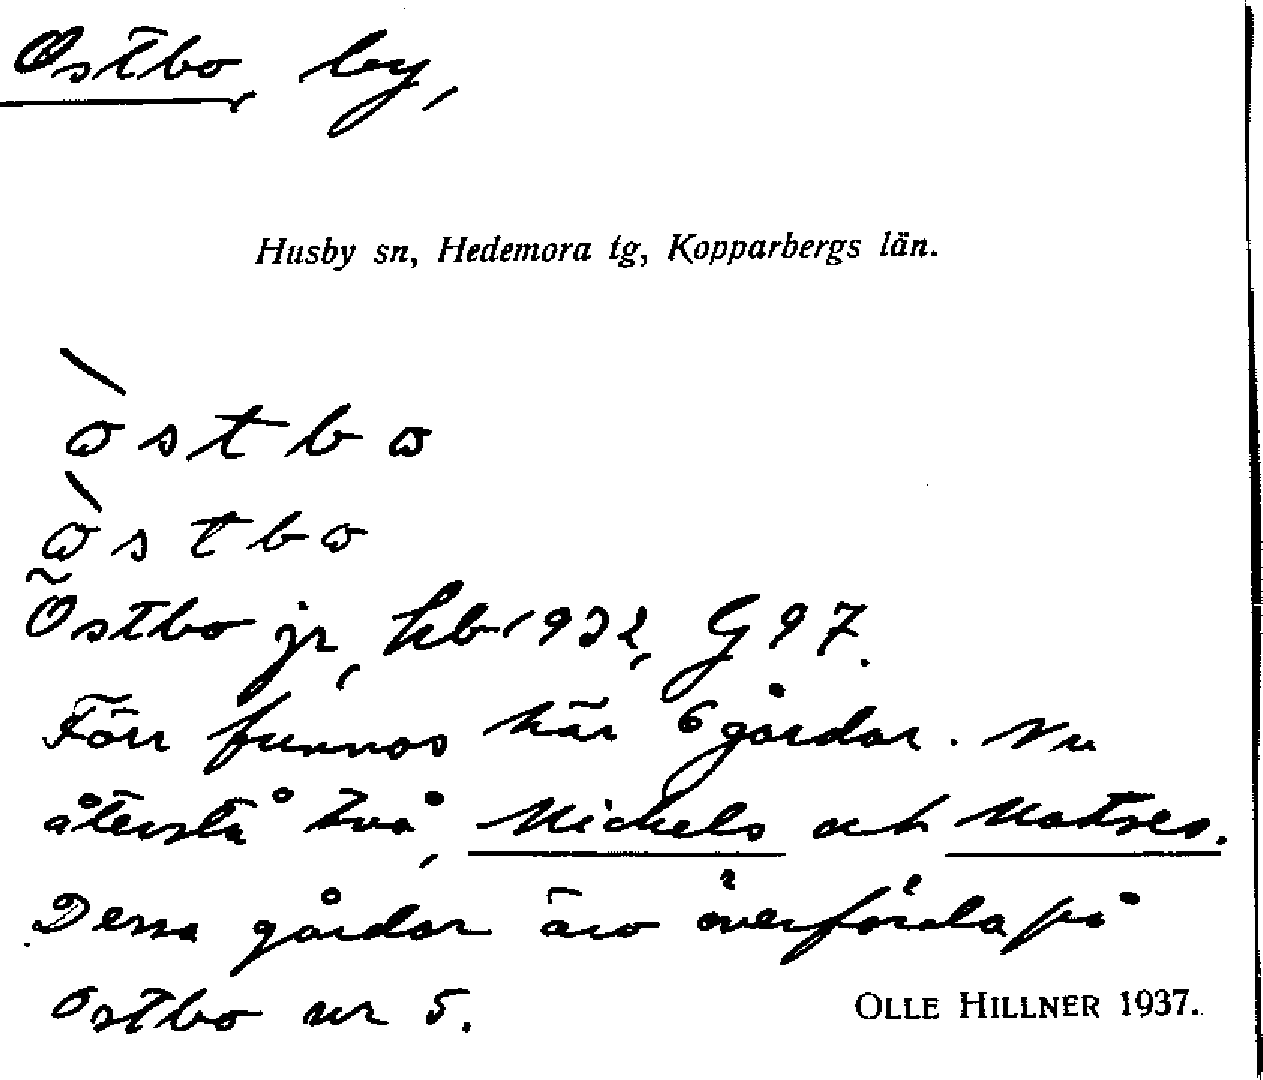 Östbo, by,
Husby sn, Hedemora tg, Kopparbergs län.
östbo
östbo
Östbo jr, kb 1932, G 97.
Förr funnos här 6 gårdar. Nu
återstå två, Mickels och Matses.
Dessa gårdar äro överförda på
Östbo nr 5.
OLLE HILLNER 1937.